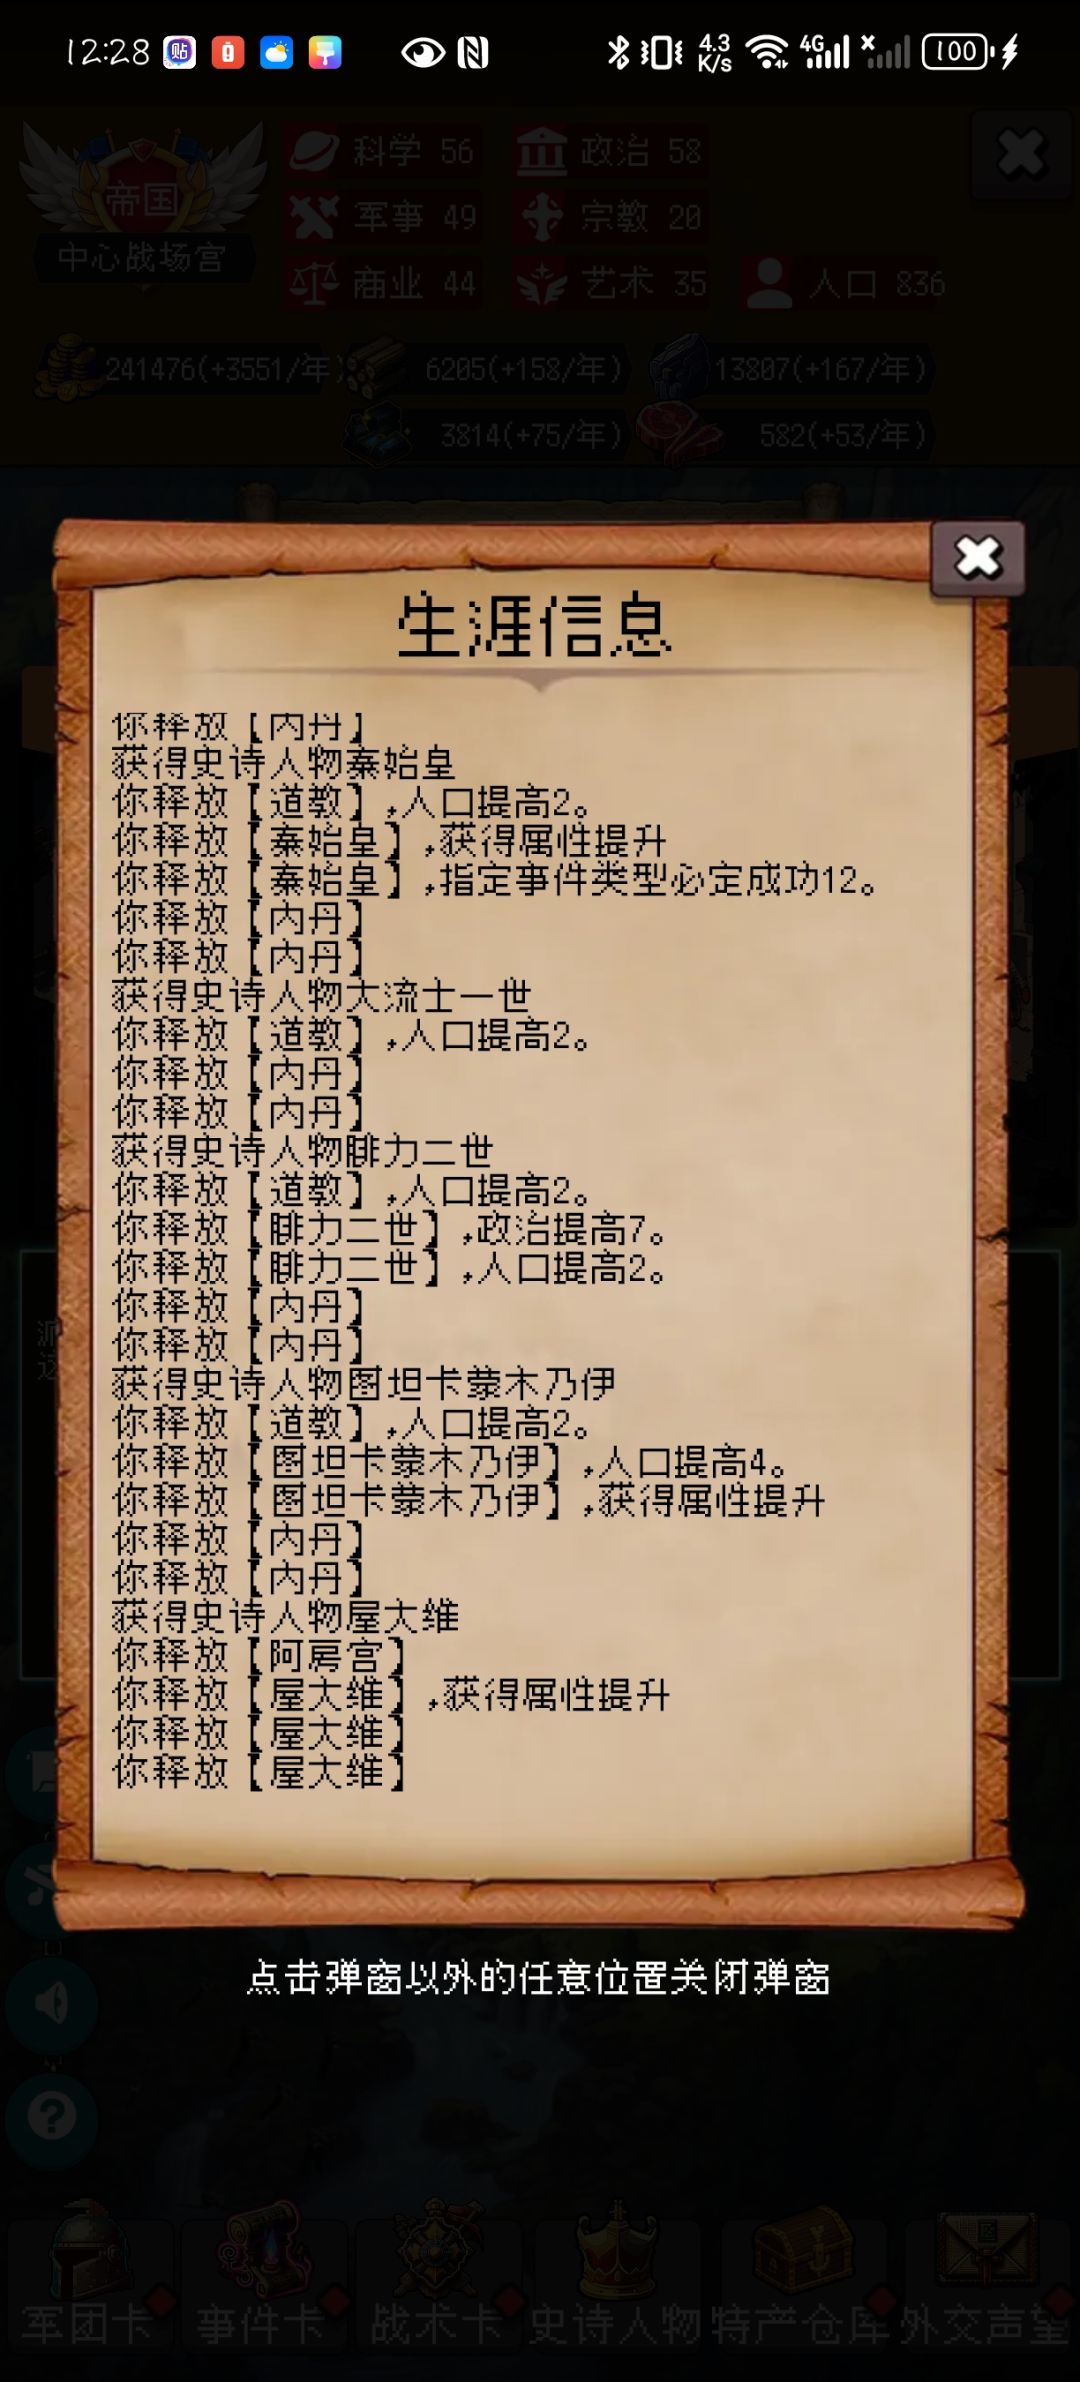 12:28 贴 4.3 K/s 4G 100
科学 56 政治 58
帝国
军事 49 宗教 20
中心战场宫
商业 44 艺术 35 人口 836
241476(+3551/年) 6205(+158/年) 13807(+167/年)
3814(+75/年) 582(+53/年)
生涯信息
你释放【内丹】
获得史诗人物秦始皇
你释放【道教】,人口提高2。
你释放【秦始皇】,获得属性提升
你释放【秦始皇】,指定事件类型必定成功12。
你释放【内丹】
你释放【内丹】
获得史诗人物大流士一世
你释放【道教】,人口提高2。
你释放【内丹】
你释放【内丹】
获得史诗人物腓力二世
你释放【道教】,人口提高2。
你释放【腓力二世】,政治提高7。
你释放【腓力二世】,人口提高2。
你释放【内丹】
你释放【内丹】
获得史诗人物图坦卡蒙木乃伊
你释放【道教】,人口提高2。
你释放【图坦卡蒙木乃伊】,人口提高4。
你释放【图坦卡蒙木乃伊】,获得属性提升
你释放【内丹】
你释放【内丹】
获得史诗人物屋大维
你释放【阿房宫】
你释放【屋大维】,获得属性提升
你释放【屋大维】
你释放【屋大维】
点击弹窗以外的任意位置关闭弹窗
军团卡 事件卡 战术卡 史诗人物 特产仓库 外交声望